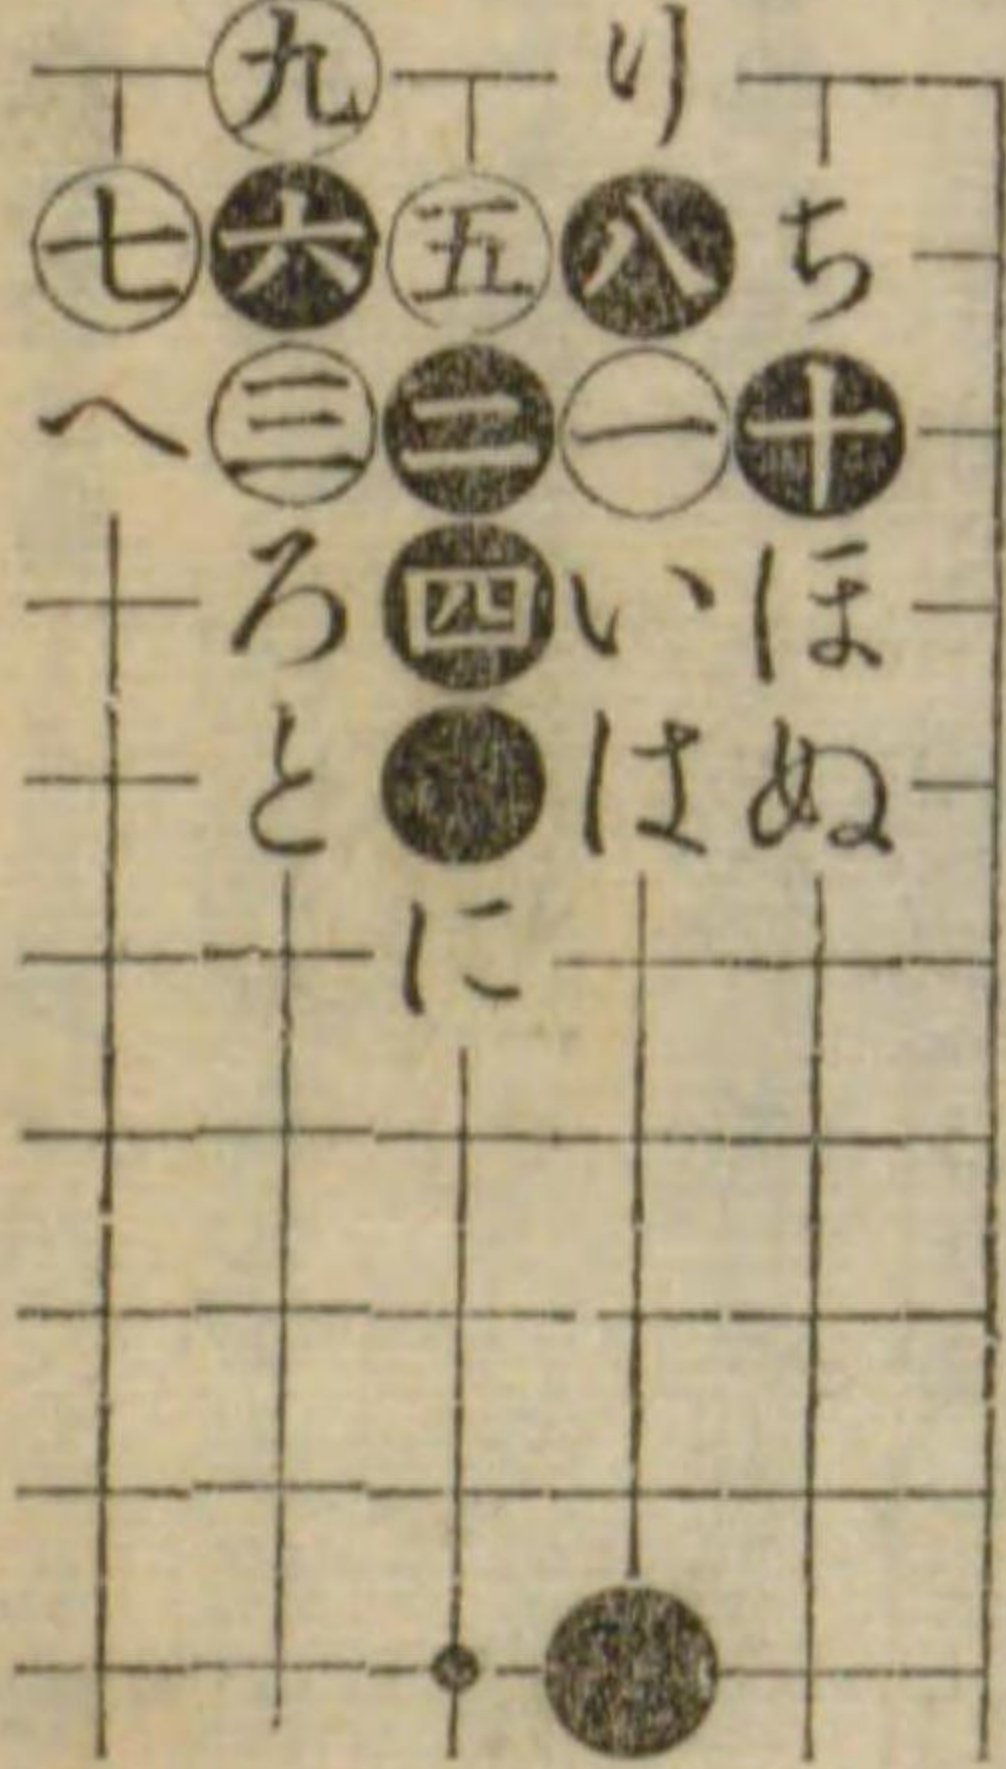 九 り
七 六 五 八 ち
へ 三 二 一 十
ろ 四 い ほ
と は ぬ
に